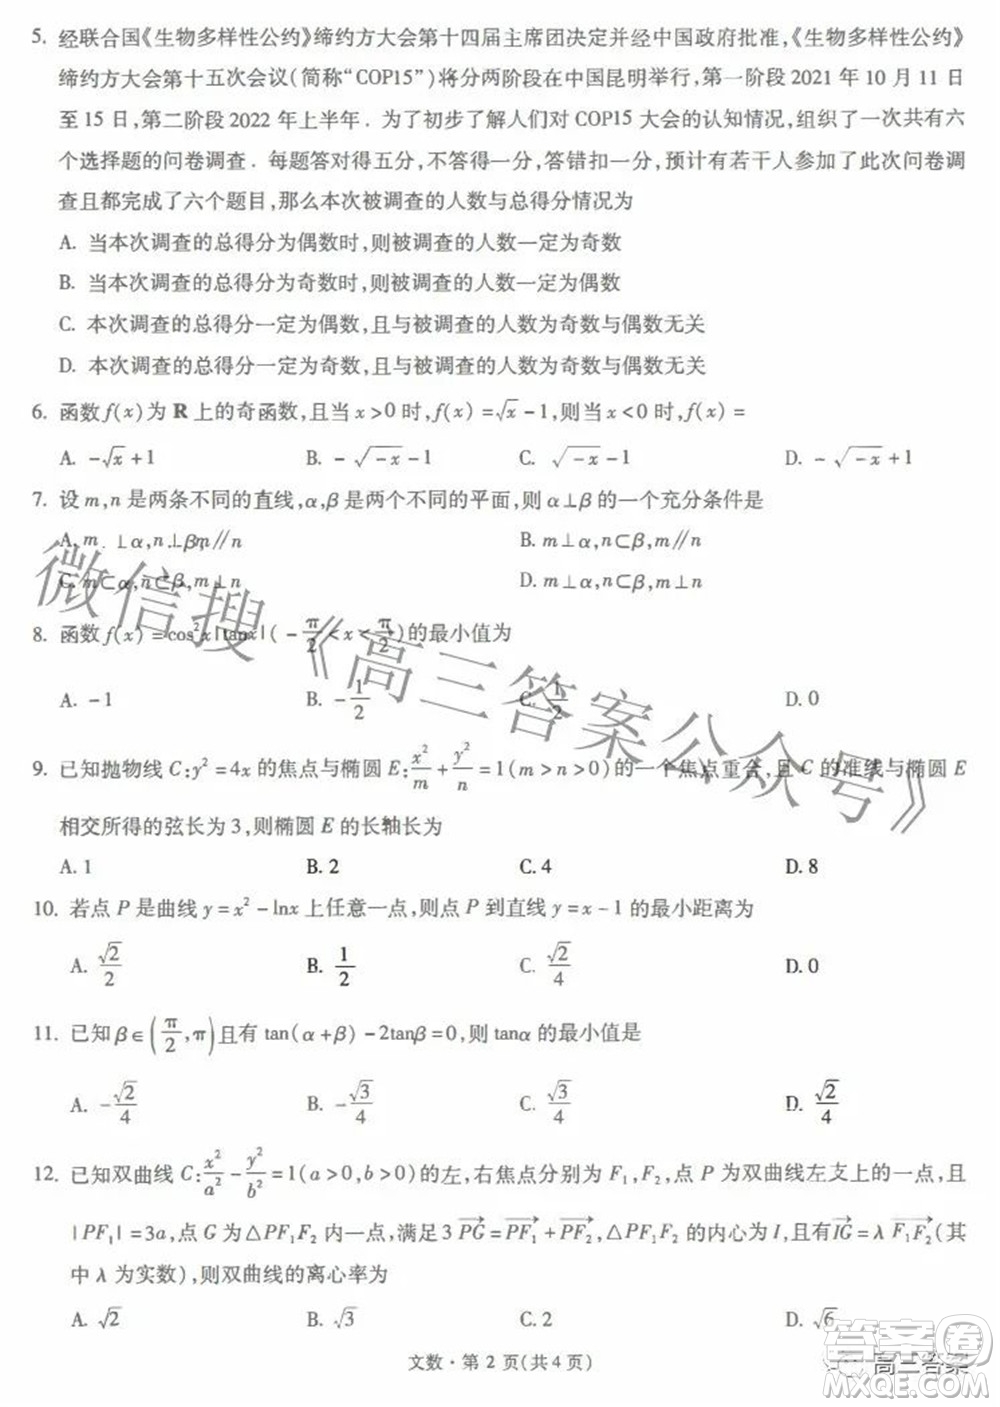 5. 经联合国《生物多样性公约》缔约方大会第十四届主席团决定并经中国政府批准，《生物多样性公约》
缔约方大会第十五次会议(简称“COP15”)将分两阶段在中国昆明举行，第一阶段 2021 年 10 月 11 日
至 15 日，第二阶段 2022 年上半年．为了初步了解人们对 COP15 大会的认知情况，组织了一次共有六
个选择题的问卷调查．每题答对得五分，不答得一分，答错扣一分，预计有若干人参加了此次问卷调
查且都完成了六个题目，那么本次被调查的人数与总得分情况为
A. 当本次调查的总得分为偶数时，则被调查的人数一定为奇数
B. 当本次调查的总得分为奇数时，则被调查的人数一定为偶数
C. 本次调查的总得分一定为偶数，且与被调查的人数为奇数与偶数无关
D. 本次调查的总得分一定为奇数，且与被调查的人数为奇数与偶数无关
6. 函数 f(x) 为 R 上的奇函数，且当 x>0 时，f(x)=√x-1，则当 x<0 时，f(x)=
A. -√x+1 B. -√-x-1 C. √-x-1 D. -√-x+1
7. 设 m,n 是两条不同的直线，α,β 是两个不同的平面，则 α⊥β 的一个充分条件是
A. m⊥α,n⊥β,m∥n B. m⊥α,n⊂β,m∥n
C. m⊂α,n⊂β,m⊥n D. m⊥α,n⊂β,m⊥n
8. 函数 f(x)=cos²x|tanx|(-π/2<x<π/2)的最小值为
A. -1 B. -1/2 C. 1/2 D. 0
9. 已知抛物线 C:y²=4x 的焦点与椭圆 E:x²/m+y²/n=1(m>n>0)的一个焦点重合，且 C 的准线与椭圆 E
相交所得的弦长为 3，则椭圆 E 的长轴长为
A. 1 B. 2 C. 4 D. 8
10. 若点 P 是曲线 y=x²-lnx 上任意一点，则点 P 到直线 y=x-1 的最小距离为
A. √2/2 B. 1/2 C. √2/4 D. 0
11. 已知 β∈(π/2,π)且有 tan(α+β)-2tanβ=0，则 tanα 的最小值是
A. -√2/4 B. -√3/4 C. √3/4 D. √2/4
12. 已知双曲线 C:x²/a²-y²/b²=1(a>0,b>0)的左，右焦点分别为 F₁,F₂，点 P 为双曲线左支上的一点，且
|PF₁|=3a，点 G 为△PF₁F₂ 内一点，满足 3PG=PF₁+PF₂，△PF₁F₂ 的内心为 I，且有 IG=λF₁F₂(其
中 λ 为实数)，则双曲线的离心率为
A. √2 B. √3 C. 2 D. √6
文数·第 2 页(共 4 页)
微信搜《高三答案公众号》
高三答案
答案圈
MXQE.COM